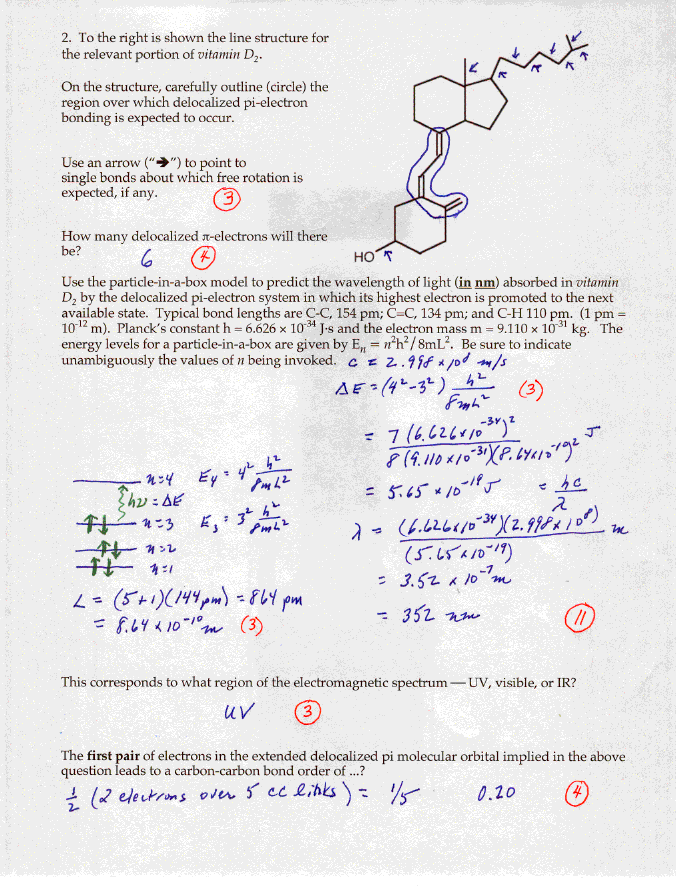 2. To the right is shown the line structure for
the relevant portion of vitamin D₂.
On the structure, carefully outline (circle) the
region over which delocalized pi-electron
bonding is expected to occur.
Use an arrow ("➔") to point to
single bonds about which free rotation is
expected, if any.
3
How many delocalized π-electrons will there
be?
6
4
HO
Use the particle-in-a-box model to predict the wavelength of light (in nm) absorbed in vitamin
D₂ by the delocalized pi-electron system in which its highest electron is promoted to the next
available state. Typical bond lengths are C-C, 154 pm; C=C, 134 pm; and C-H 110 pm. (1 pm =
10⁻¹² m). Planck's constant h = 6.626 × 10⁻³⁴ J·s and the electron mass m = 9.110 × 10⁻³¹ kg. The
energy levels for a particle-in-a-box are given by Eₙ = n²h²/8mL². Be sure to indicate
unambiguously the values of n being invoked. c = 2.998 × 10⁸ m/s
ΔE = (4² - 3²) h²/8mL² (3)
= 7 (6.626×10⁻³⁴)² / 8 (9.110×10⁻³¹)(8.64×10⁻¹⁰)² J
= 5.65 × 10⁻¹⁹ J = hc/λ
λ = (6.626×10⁻³⁴)(2.998×10⁸) / (5.65×10⁻¹⁹) m
= 3.52 × 10⁻⁷ m
= 352 nm
11
n=4 E₄ = 4² h²/8mL²
hν = ΔE
n=3 E₃ = 3² h²/8mL²
n=2
n=1
L = (5+1)(144 pm) = 864 pm
= 8.64 × 10⁻¹⁰ m (3)
This corresponds to what region of the electromagnetic spectrum — UV, visible, or IR?
UV
3
The first pair of electrons in the extended delocalized pi molecular orbital implied in the above
question leads to a carbon-carbon bond order of ...?
½ (2 electrons over 5 cc links) = 1/5 0.20
4